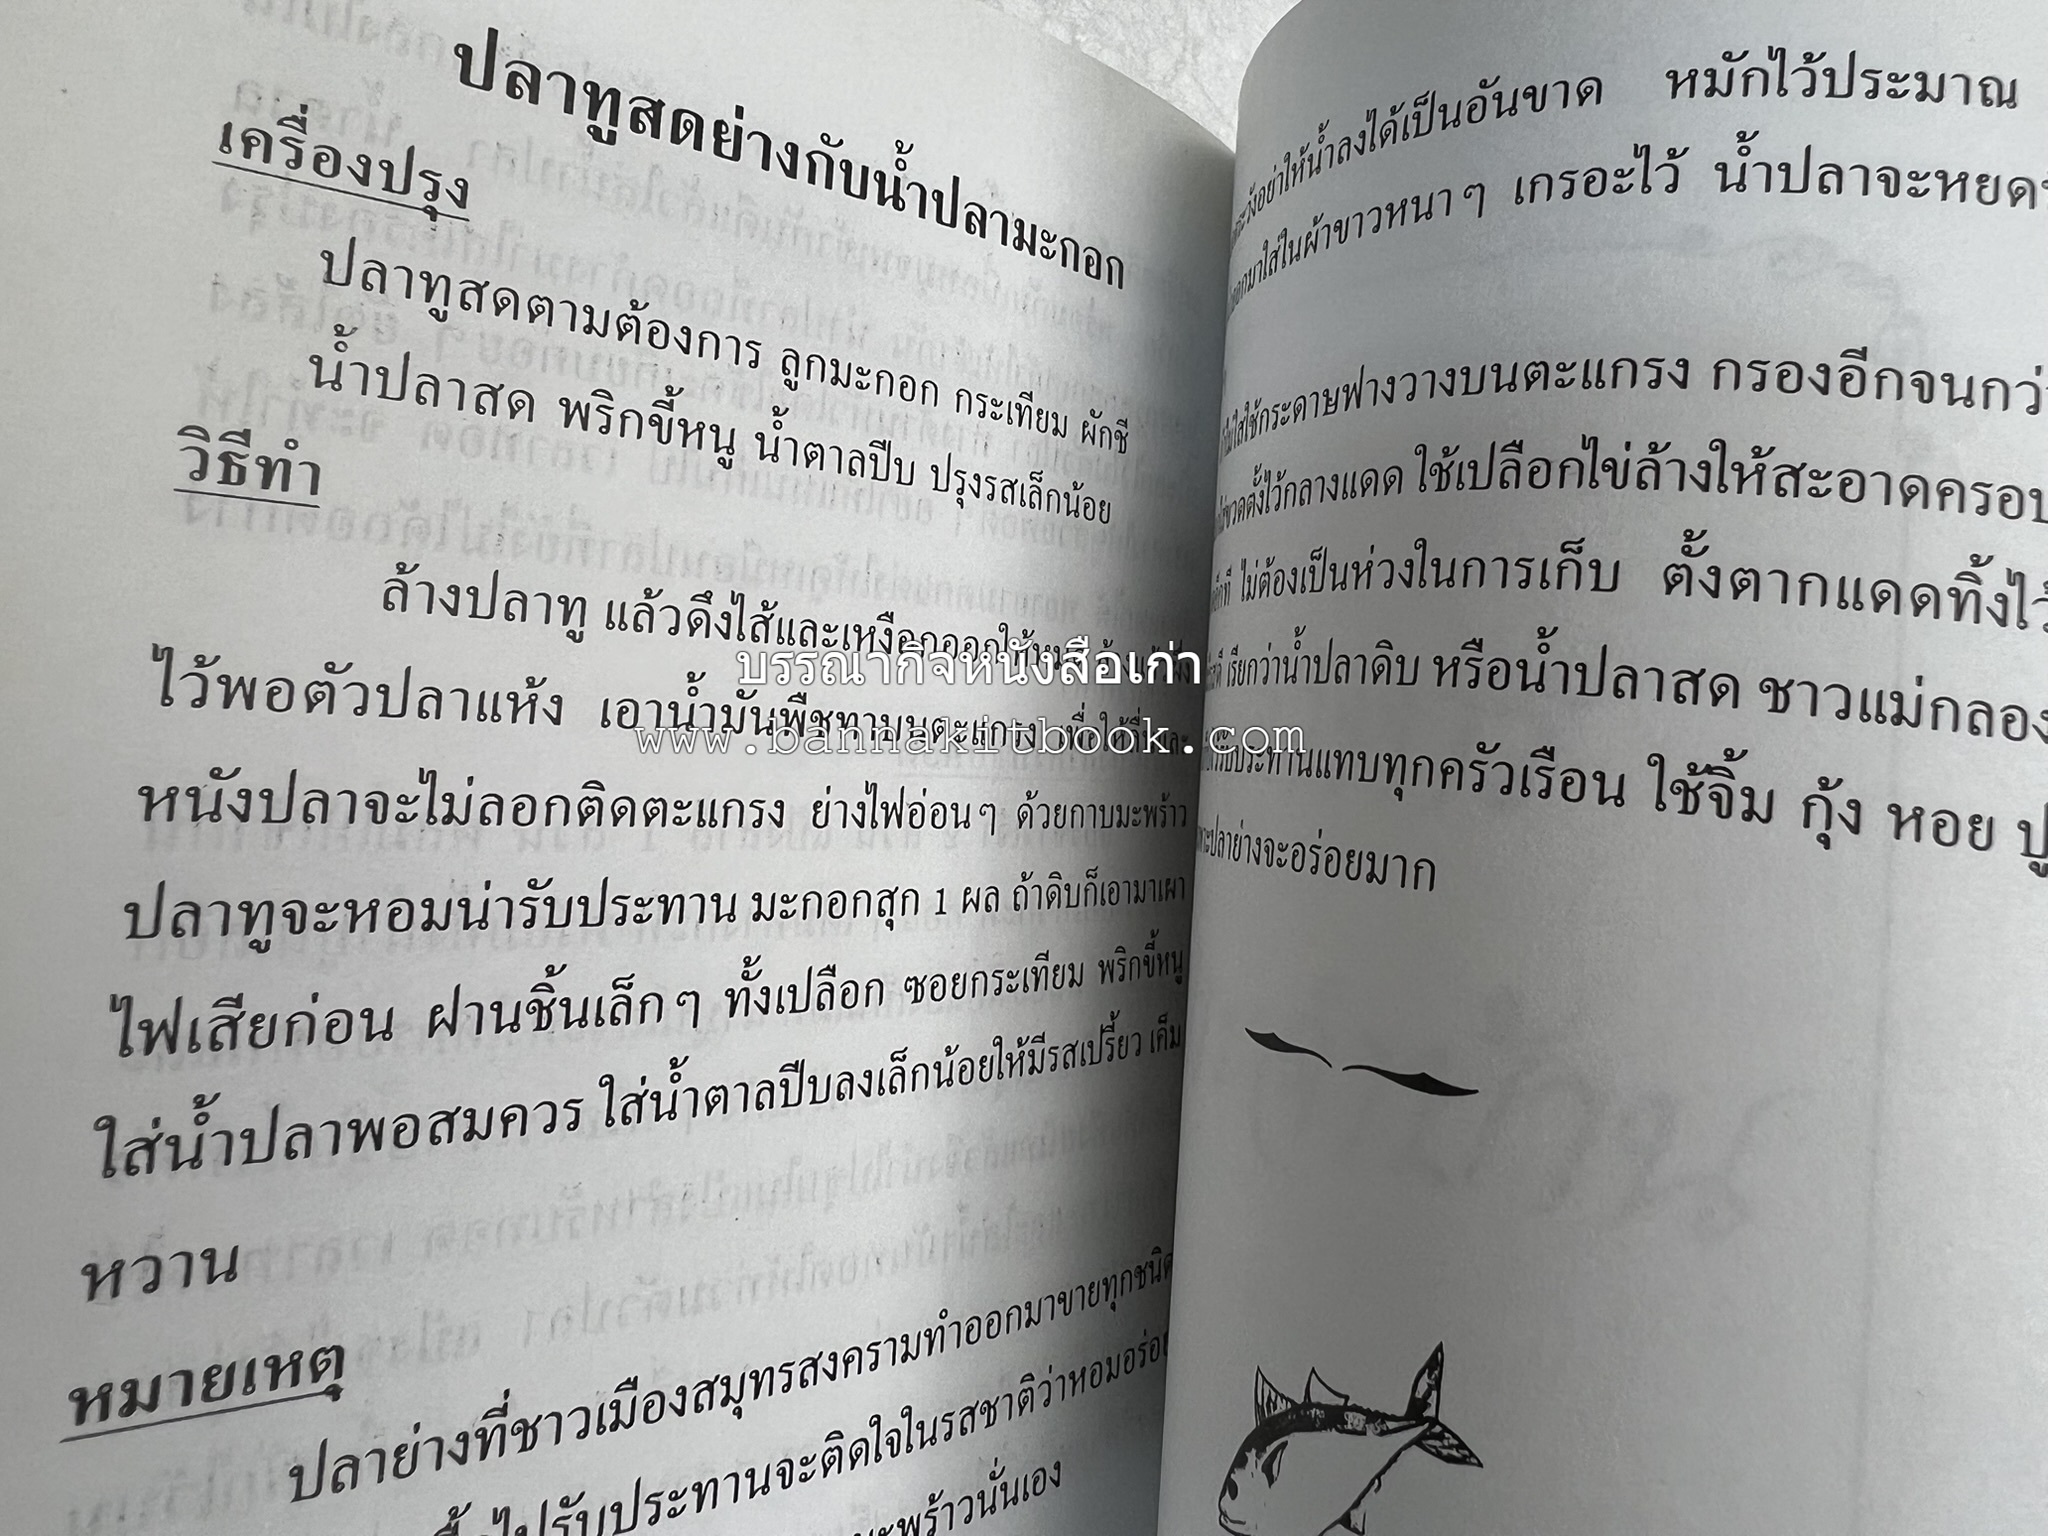 ปลาทูสดย่างกับน้ำปลามะกอก
เครื่องปรุง
ปลาทูสดตามต้องการ ลูกมะกอก กระเทียม ผักชี
น้ำปลาสด พริกขี้หนู น้ำตาลปีบ ปรุงรสเล็กน้อย
วิธีทำ
ล้างปลาทู แล้วดึงไส้และเหงือกออกให้หมด
ไว้พอตัวปลาแห้ง เอาน้ำมันพืชทาบนตะแกรง เพื่อให้ลื่นและ
หนังปลาจะไม่ลอกติดตะแกรง ย่างไฟอ่อนๆ ด้วยกาบมะพร้าว
ปลาทูจะหอมน่ารับประทาน มะกอกสุก 1 ผล ถ้าดิบก็เอามาเผา
ไฟเสียก่อน ฝานชิ้นเล็กๆ ทั้งเปลือก ซอยกระเทียม พริกขี้หนู
ใส่น้ำปลาพอสมควร ใส่น้ำตาลปีบลงเล็กน้อยให้มีรสเปรี้ยว เค็ม
หวาน
หมายเหตุ
ปลาย่างที่ชาวเมืองสมุทรสงครามทำออกมาขายทุกชนิด
ไปรับประทานจะติดใจในรสชาติว่าหอมอร่อย
มะพร้าวนั่นเอง
บรรณากิจหนังสือเก่า
www.bannakitbook.com
ระวังอย่าให้น้ำลงได้เป็นอันขาด หมักไว้ประมาณ
ออกมาใส่ในผ้าขาวหนาๆ เกรอะไว้ น้ำปลาจะหยด
ใช้กระดาษฟางวางบนตะแกรง กรองอีกจนกว่า
ขวดตั้งไว้กลางแดด ใช้เปลือกไข่ล้างให้สะอาดครอบ
ไม่ต้องเป็นห่วงในการเก็บ ตั้งตากแดดทิ้งไว้
เรียกว่าน้ำปลาดิบ หรือน้ำปลาสด ชาวแม่กลอง
รับประทานแทบทุกครัวเรือน ใช้จิ้ม กุ้ง หอย ปู
ปลาย่างจะอร่อยมาก